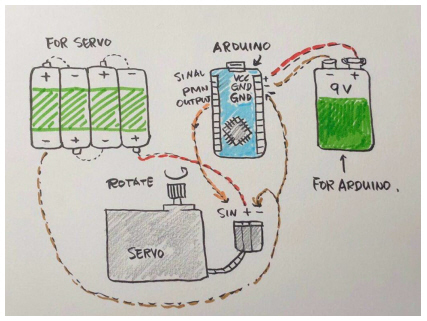 FOR SERVO
ARDUINO
SINAL
PMN
OUTPUT
VCC
GND
GND
+
-
- +
9V
+ - + -
- + - +
FOR ARDUINO.
ROTATE
SIN + -
SERVO